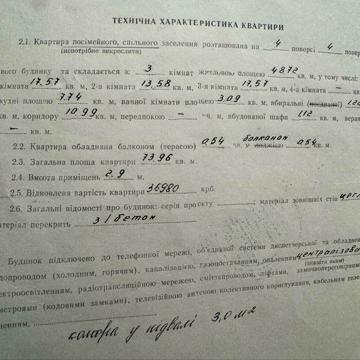 ТЕХНІЧНА ХАРАКТЕРИСТИКА КВАРТИРИ
2.1. Квартира посімейного, спільного заселення розташована на 4 поверсі 4 повер
(непотрібне викреслити)
ного будинку та складається із 3 кімнат житловою площею 48,72 кв. м, у тому числі
кімната 17,57 кв. м, 2-а кімната 13,58 кв. м, 3-я кімната 17,57 кв. м, 4-а кімната —
кухні площею 7,74 кв. м, ванної кімнати площею 3,09 кв. м, вбиральні
кв. м, коридору 10,99 кв. м, передпокою — кв. м, вбудованої шафи 1,12 кв. м,
— кв. м.
2.2. Квартира обладнана балконом (терасою) 0,54 балконом 0,54 кв. м
2.3. Загальна площа квартири 73,96 кв. м.
2.4. Висота приміщень 2,9 м.
2.5. Відновлена вартість квартири 36980 крб.
2.6. Загальні відомості про будинок: серія проєкту матеріал зовнішніх стін
матеріал перекрить з/бетон
Будинок підключено до телефонної мережі, об'єднаної системи диспетчерської та обладна
водопроводом (холодним, горячим), каналізацією, газопостачанням, опаленням централізова
електроосвітленням, радіотрансляційною мережею, сміттєпроводом, ліфтами,
пристроями (кодовими замками), телевізійною антеною колективного користування, кабельним
комора у підвалі 3,0 м2